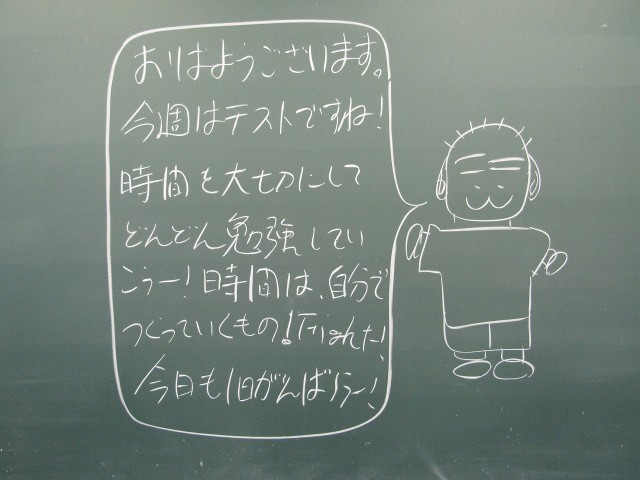 おはようございます。
今週はテストですね!
時間を大切にして
どんどん勉強してい
こうー!時間は、自分で
つくっていくもの!
今日も1日がんばろうー!